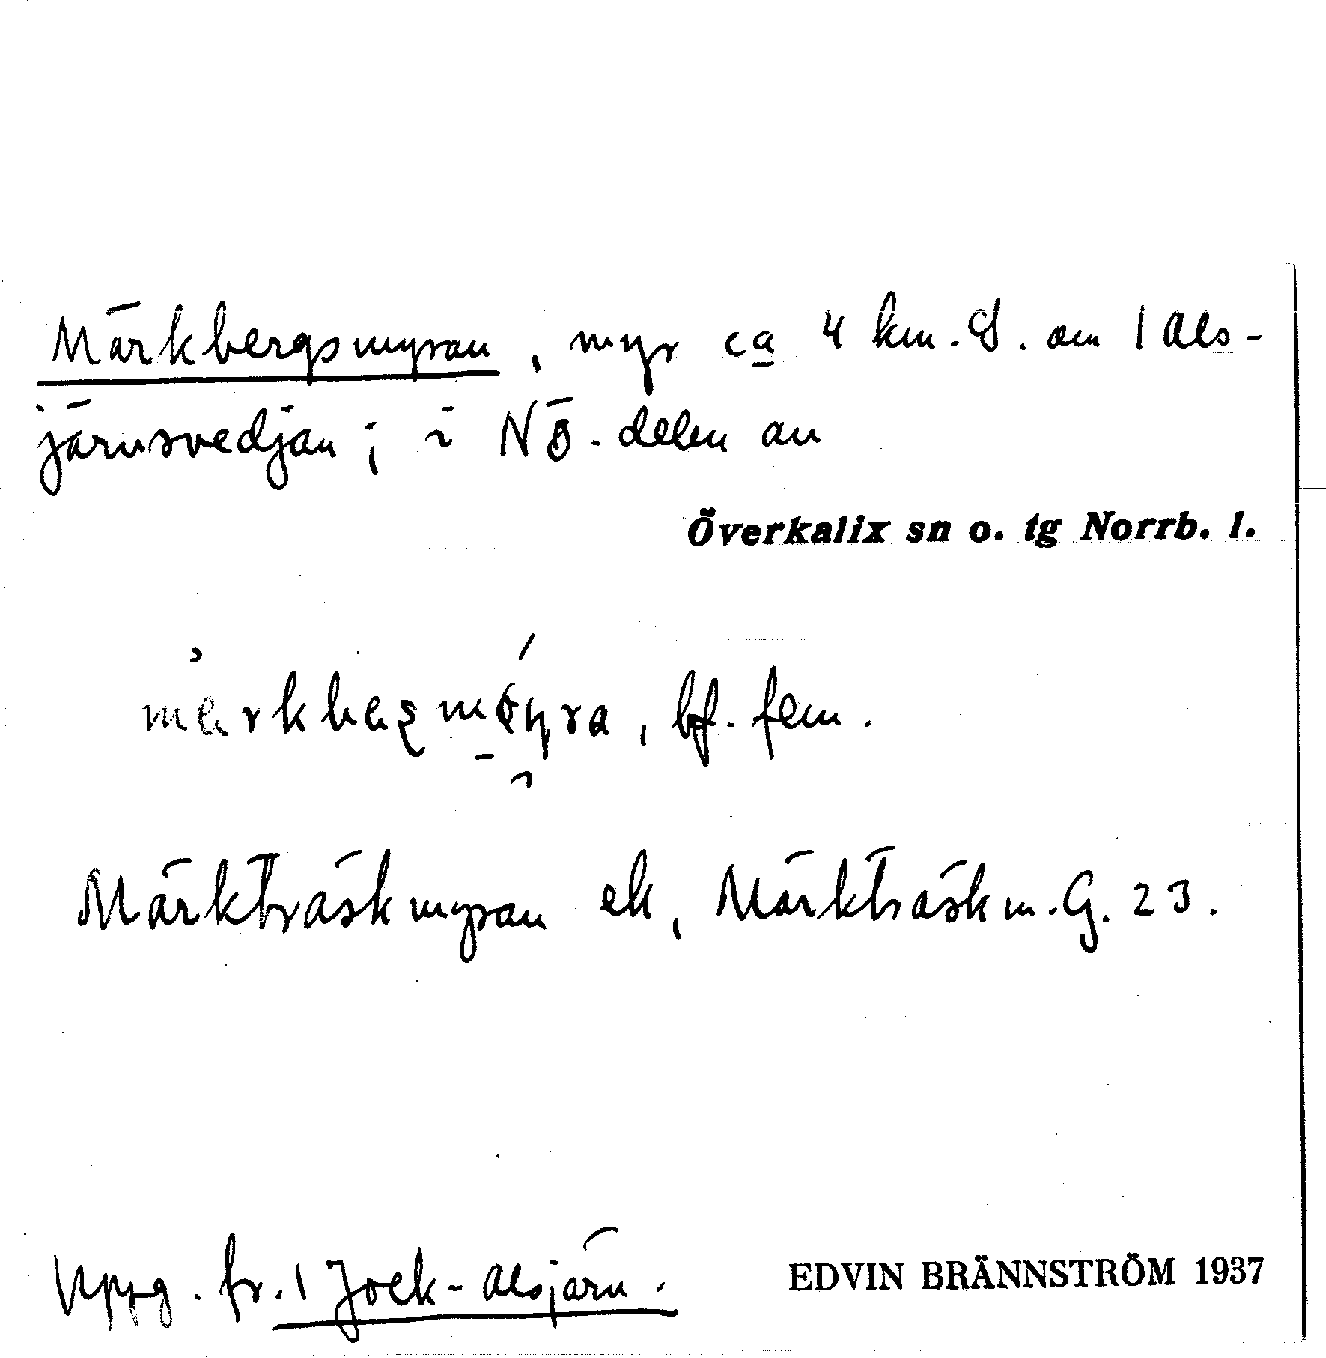 Märkbergsmyran, myr ca 4 km. S. om 1 Als-
järnsvedjan; i NÖ-delen av
Överkalix sn o. tg Norrb. l.
bf. fem.
Märkträskmyran ek, Märkträsk m. G. 23.
Uppg. fr. 1 Jock-Alsjärn.
EDVIN BRÄNNSTRÖM 1937